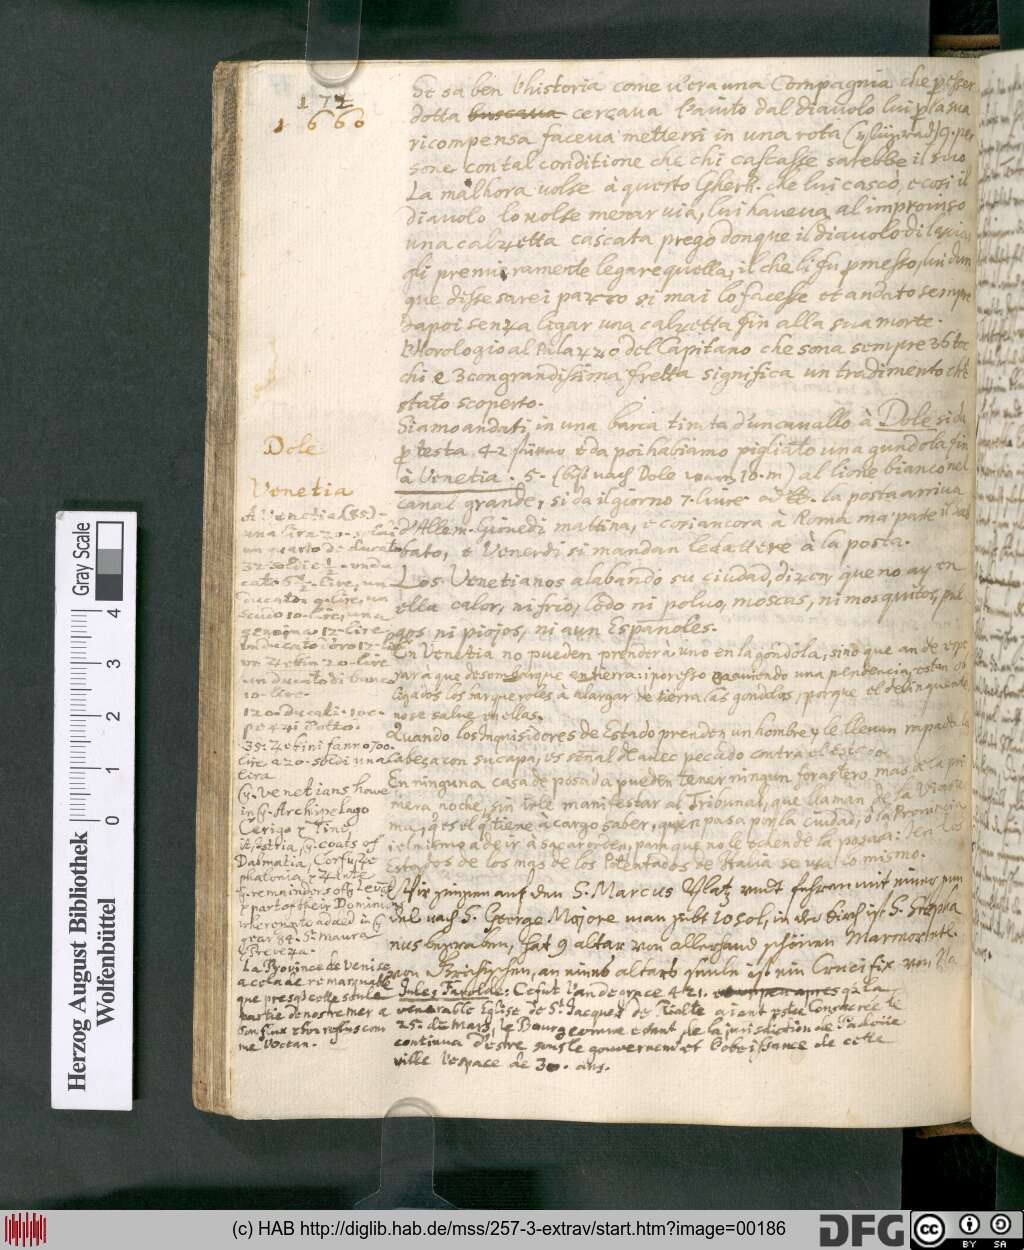 172
1660
Si sa ben l'historia come v'era una Compagnia che
dotta buscava cercava l'aiuto dal diavolo lui la sua
ricompensa faceva mettersi in una rota 9. per
sone con tal conditione che chi cascasse sarebbe il suo
La malhora volse à questo che lui cascò, e cosi il
diavolo lo volse menar via, lui haveva al improviso
una calzetta cascata pregò donque il diavolo di
gli primieramente legare quella, il che li fu
que disse sarei pazzo si mai lo facesse et andato sempre
dapoi senza legar una calzetta fin alla sua morte.
L'horologio al Palazzo del Capitano che sona sempre 36 toc
chi e 3 con grandissima fretta significa un tradimento ch'è
stato scoperto.
Siamo andati in una barca tirata d'un cavallo à Dole si dà
testa 42 e da poi habiamo pigliato una gundola fin
à Venetia. 5. Dole al lione bianco nel
canal grande, si da il giorno 7. livre la posta arriva
d'Allem. Giovedi mattina, e cosi ancora à Roma ma parte il sab
bato, e Venerdi si mandan le lettere à la posta.
Los Venetianos alabando su ciudad, dizen, que no ay en
ella calor, ni frio, lodo ni polvo, moscas, ni mosquitos, pul
gas ni piojos, ni aun Españoles.
En Venetia no pueden prender a uno en la gondola, sino que an de espe
rar a que desembarque en tierra: i por esso aviendo una pendencia, estan o
bligados los a alargar de tierra las gondolas, porque el delinquente
no se salve en ellas.
Quando los Inquisidores de Estado prenden un hombre y le llevan tapada la
cabeza con su capa, es señal de aver pecado contra el Estado.
En ninguna casa de posada pueden tener ningun forastero, mas de la pri
mera noche, sin irle manifestar al Tribunal, que llaman de la
ma, q es el q tiene à cargo saber, quien pasa por la ciudad, ò la Provincia
i el mismo a de ir a sacar orden, para que no le echen de la posada: i en los
Estados de los mas de los Potentados de Italia se usa lo mismo.
Wir auf den S. Marcus Platz und fuhren mit einer gun
del nach S. George Majore man gibt 10 sol, in der Kirch ist S. Stepha
nus begraben, hat 9 altar von allerhand schönen Marmor
von an eines altars ist ein Crucifix von
Jules Farolde: Ce fut l'an de grace 421. qu'à la
venerable Eglise de S. Jacques de Rialte aiant estée Consacrée le
25. de Mars, le Bourg comme estant de la jurisdiction de Padoüe
continua d'estre sous le gouvernement et l'obeissance de cette
ville l'espace de 30. ans.
Dole
Venetia
A Venetia
una lira 20. soldi
un quarto de ducato
32 soldi e 1/2. un du
cato 6 1/2. lire, un
ducaton 9 lire, un
scudo 10. lire, una
12. lire
un ducato d'oro 17. lire
un zechin 20. lire
un ducato di banco
10. lire.
120. ducati. 100.
pezzi d'otto.
35. Zechini fanno 700.
lire a 20. soldi una
lira
Venetians have
in Archipelago
Cerigo Tine
Histria, coats of
Dalmatia, Corfu, Ce
phalonia, Zante
remainders of Levant
part of their Dominion
whereunto added in
year 84. St. Maura
Prevesa.
La Province de Venise
a cela de remarquable
que presqu'elle seule
partie de nostre mer a
son flux et son reflus com
me l'Ocean.
Herzog August Bibliothek
Wolfenbüttel
0 1 2 3 4
Gray Scale
(c) HAB http://diglib.hab.de/mss/257-3-extrav/start.htm?image=00186
DFG
cc
BY SA